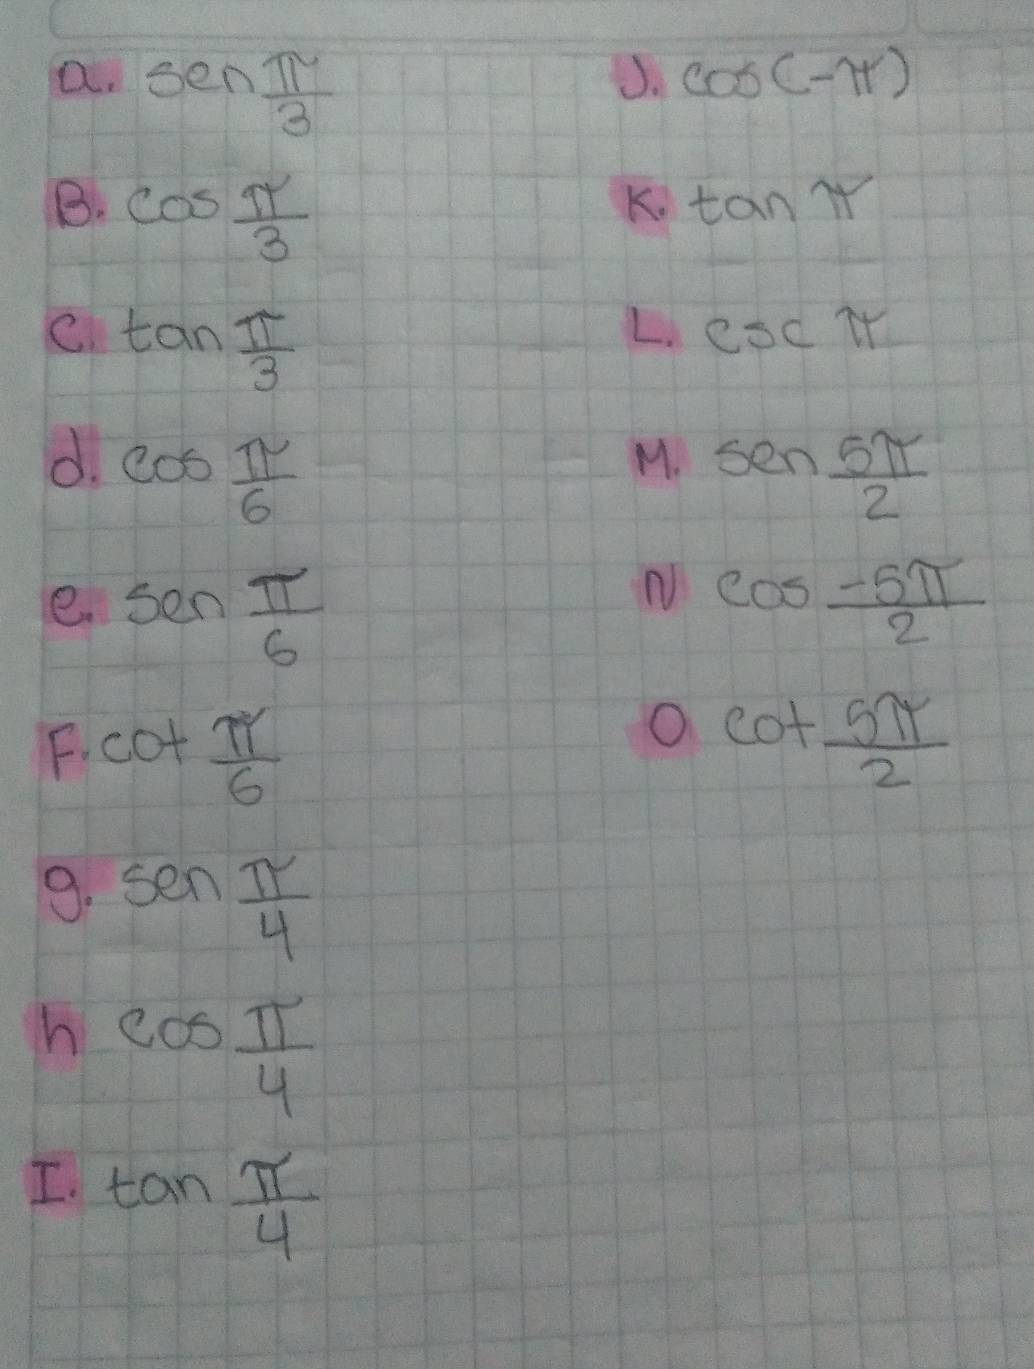 a. sen π/3
B. cos π/3
C. tan π/3
d. cos π/6
e. sen π/6
F. cot π/6
g. sen π/4
h cos π/4
I. tan π/4
J. cos(-π)
K. tan π
L. csc π
M. sen 5π/2
N cos -5π/2
O cot 5π/2